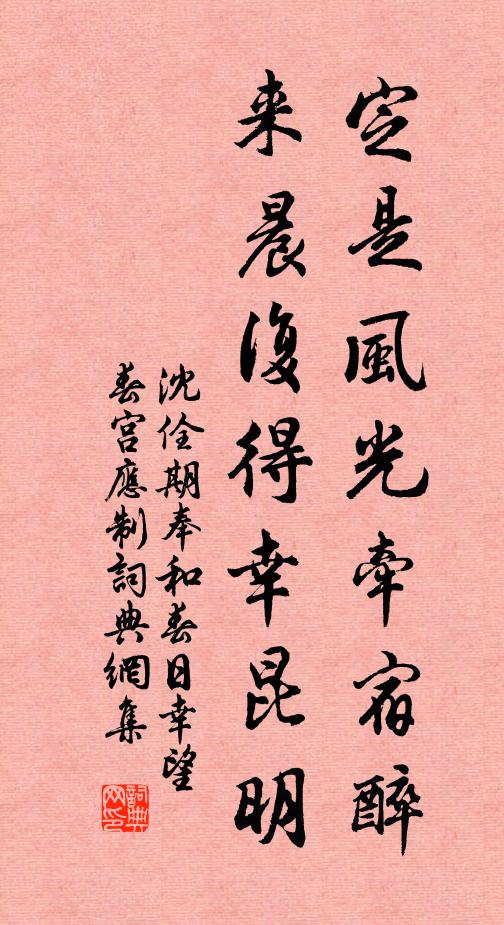 定是風光牽宿醉
来晨復得幸昆明
沈佺期奉和春日幸望
春宮應制詞典網集
詞典
网印